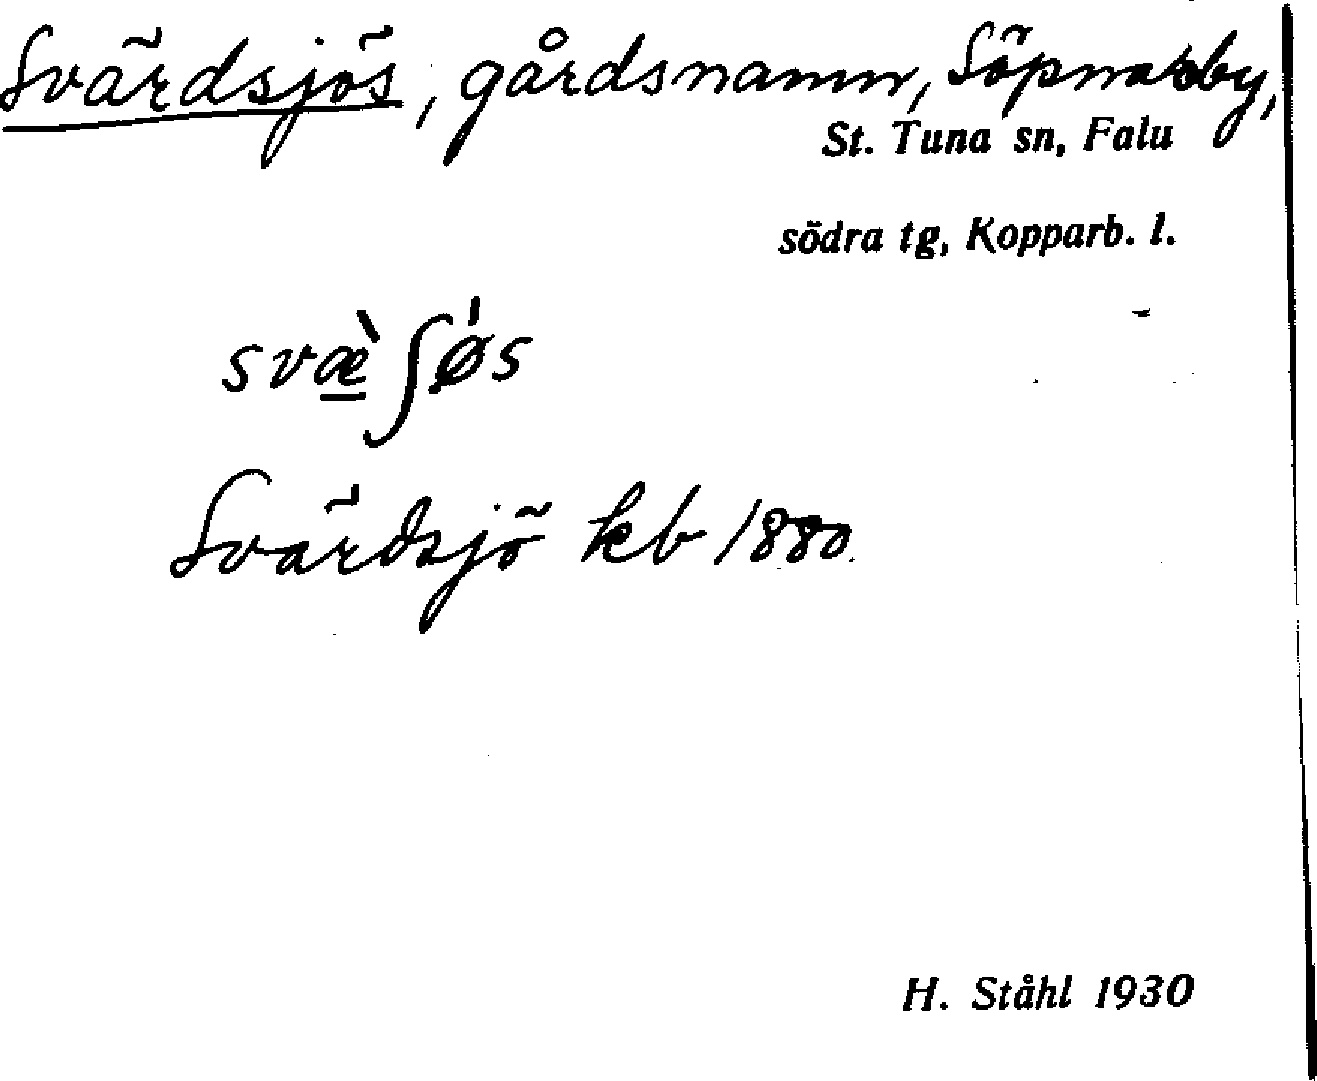 Svärdsjös, gårdsnamn, Söpnarby,
St. Tuna sn, Falu
södra tg, Kopparb. l.
svæ̠̀ʃø̍s
Svärdsjö kb 1880.
H. Ståhl 1930